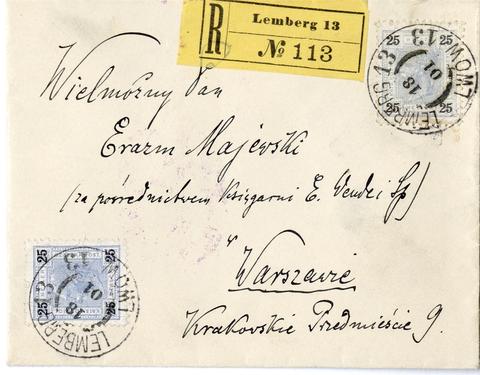 R
Lemberg 13
№ 113
25 25
25 25
LEMBERG 13 LWÓW 13
18
01
Wielmożny Pan
Erazm Majewski
(za pośrednictwem Księgarni E. Wende i Sp)
w Warszawie
Krakowskie Przedmieście 9.
25 25
25 25
LEMBERG 13 LWÓW 13
18
01